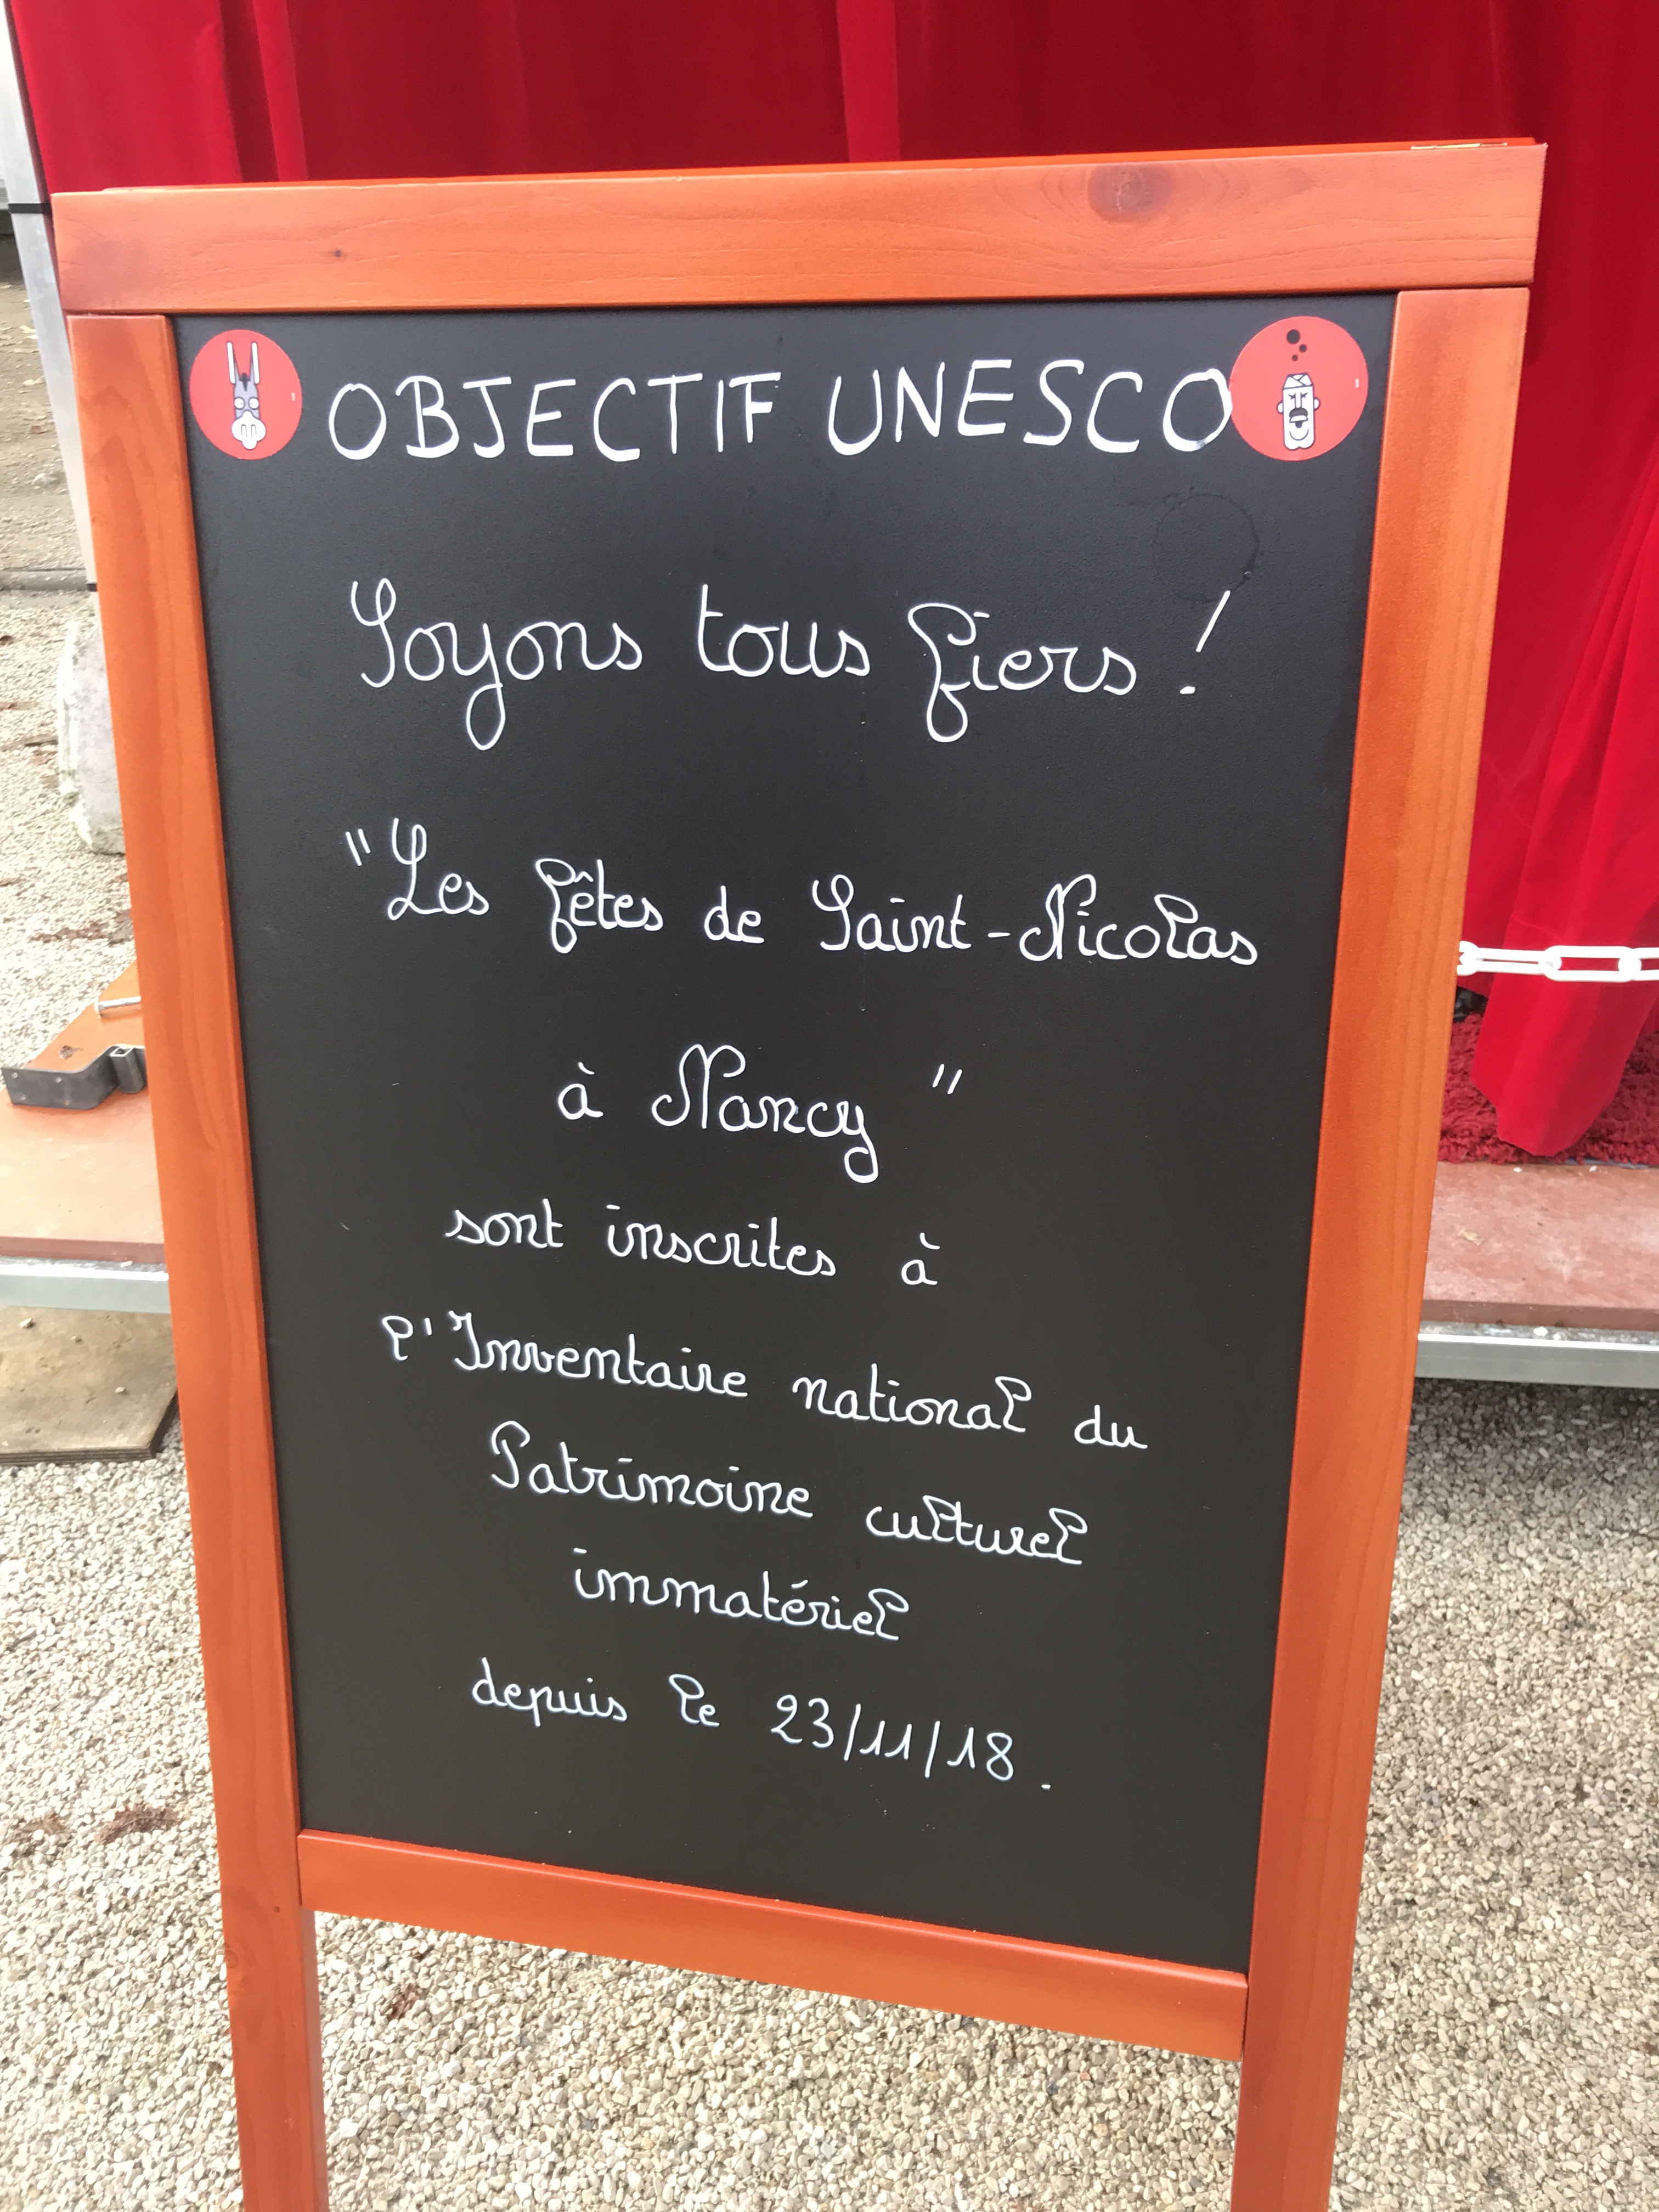 OBJECTIF UNESCO
Soyons tous fiers !
"Les fêtes de Saint-Nicolas
à Nancy "
sont inscrites à
l'Inventaire national du
Patrimoine culturel
immatériel
depuis le 23/11/18.